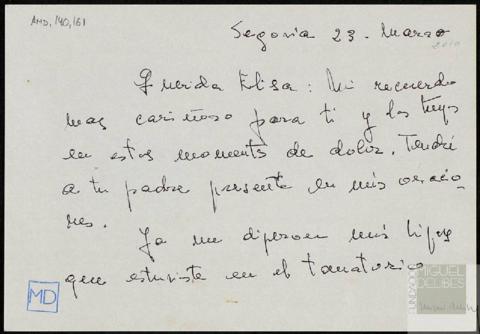 AMD, 140, 161
Segovia 23 - Marzo
2010
Querida Elisa: Mi recuerdo
mas cariñoso para ti y los tuyos
en estos momentos de dolor. Tendré
a tu padre presente en mis oracio-
nes.
Ya me dijeron mis hijos
que estuviste en el tanatorio
MD
FUNDACIÓN
MIGUEL
DELIBES